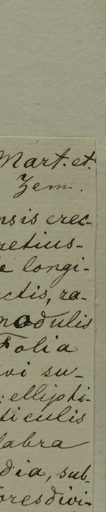 Mart. et.
Zem.
ensis erec-
retius-
e longi-
ctis, ra-
nodulis
Folia
vi su-
ellipti-
ticulis
labra
dia, sub
oresdivi-